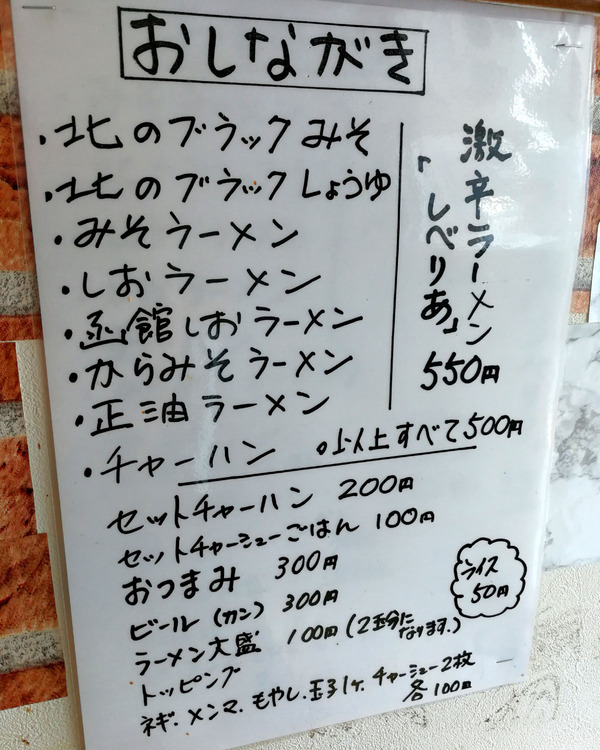 おしながき
・北のブラックみそ
・北のブラックしょうゆ
・みそラーメン
・しおラーメン
・函館しおラーメン
・からみそラーメン
・正油ラーメン
・チャーハン 。以上すべて500円
激辛ラーメン
「しべりあ」
550円
セットチャーハン 200円
セットチャーシューごはん 100円
おつまみ 300円
ビール(カン) 300円
ラーメン大盛 100円(2玉分になります。)
トッピング
ネギ.メンマ.もやし.玉子1ヶ.チャーシュー2枚
各100円
ライス
50円